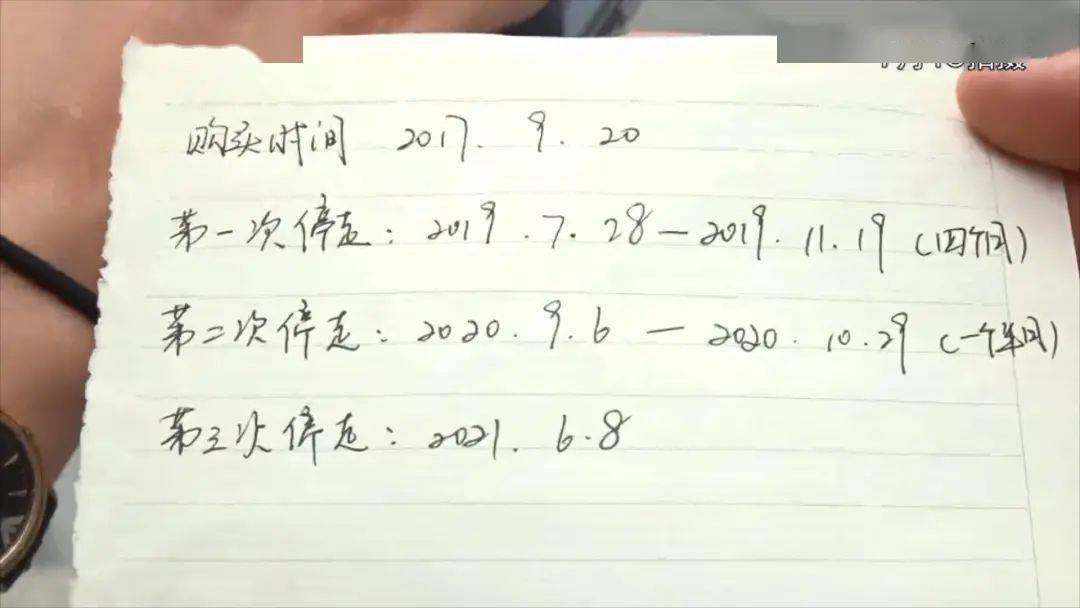 购买时间 2017. 9. 20
第一次停走: 2019.7.28—2019.11.19 (四个月)
第二次停走: 2020.9.6 — 2020.10.29 (一个半月)
第三次停走: 2021. 6.8